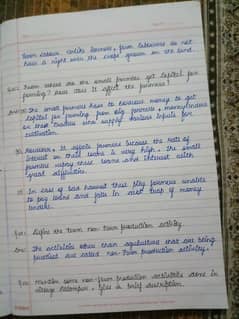 Farm labour unlike farmers, farm labourers do not
have a right over the crops grown on the land.
Que: From where do the small farmers get capital for
farming? how does it affect the farmers?
Ans: The small farmers have to borrow money to get
capital for farming from big farmers, money lenders
or the traders who supply various inputs for
cultivation.
However, it affects farmers because the rate of
interest on such loans is very high. The small
farmers repay these loans and interest with
great difficulties.
In case of bad harvest thus they farmers unable
to pay loans and falls in debt trap of money
lenders.
Que: Define the term non farm production activity.
Ans: The activities other than agriculture that are being
practised are called non-farm production activity.
Que: Mention some non-farm production activities done in
village Palampur. Give a brief description.